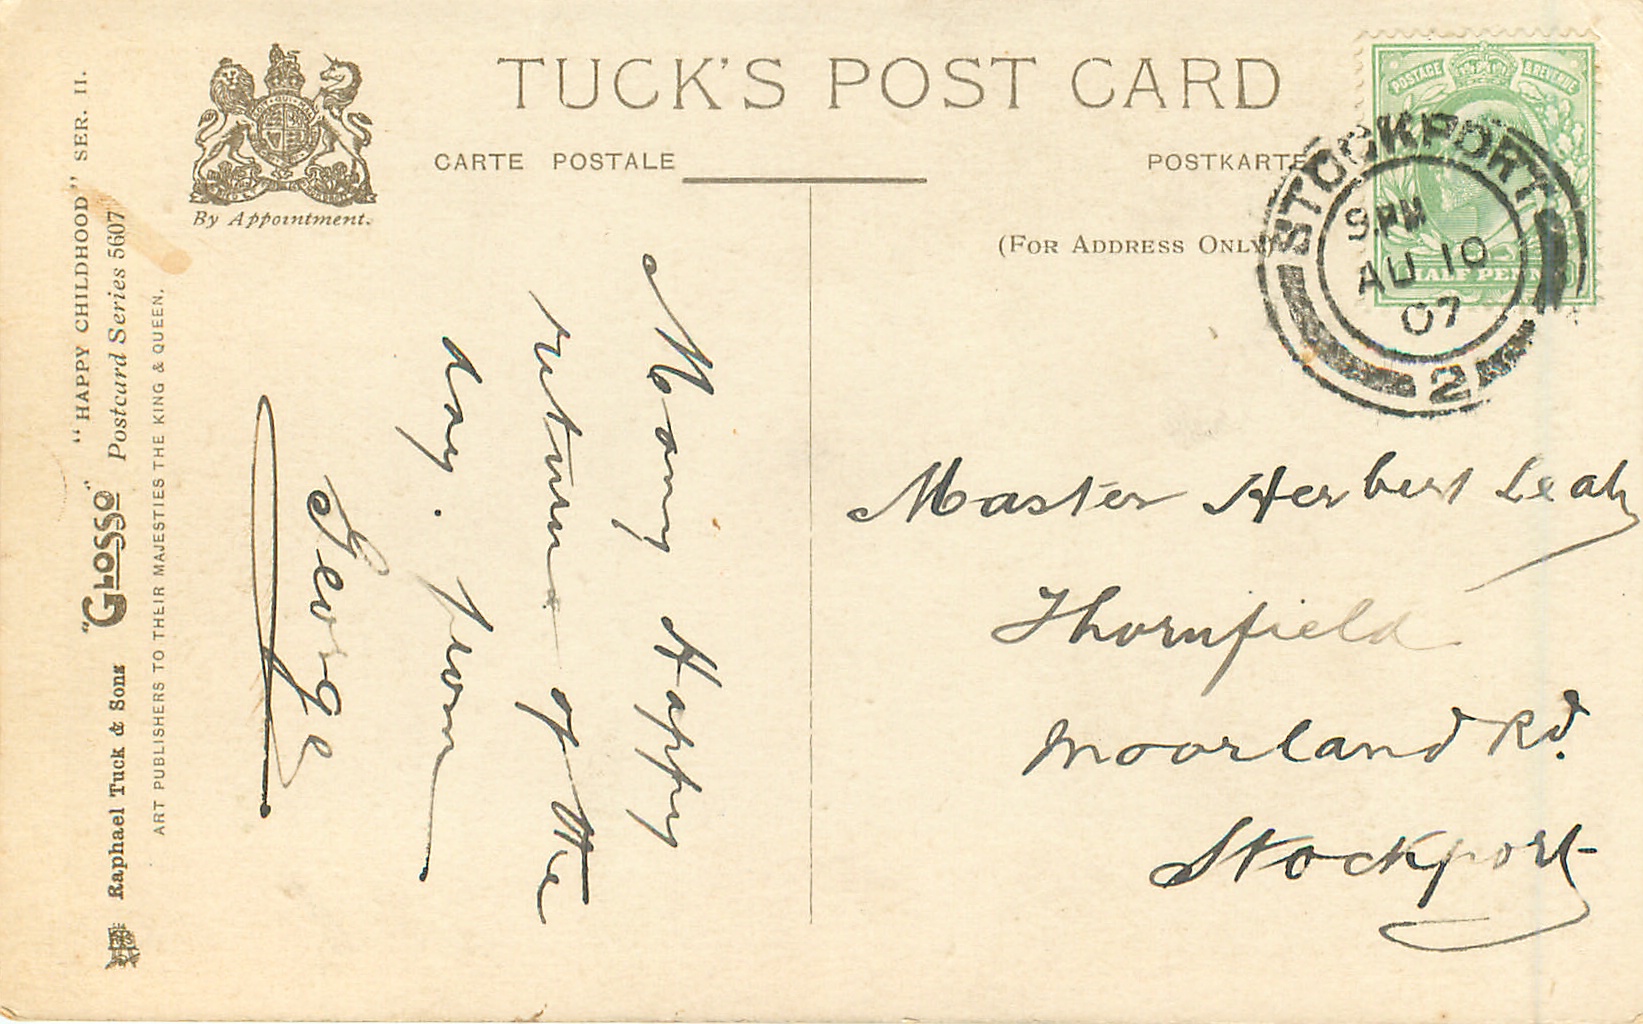 TUCK'S POST CARD
CARTE POSTALE
POSTKARTE
(FOR ADDRESS ONLY
By Appointment.
POSTAGE & REVENUE
HALF PENNY
STOCKPORT
9.PM
AU 10
07
2
Many Happy
return of the
day. from
George
Master Herbert Leah
Thornfield
Moorland Rd.
Stockport
"HAPPY CHILDHOOD" SER. II.
Raphael Tuck & Sons "GLOSSO" Postcard Series 5607
ART PUBLISHERS TO THEIR MAJESTIES THE KING & QUEEN.